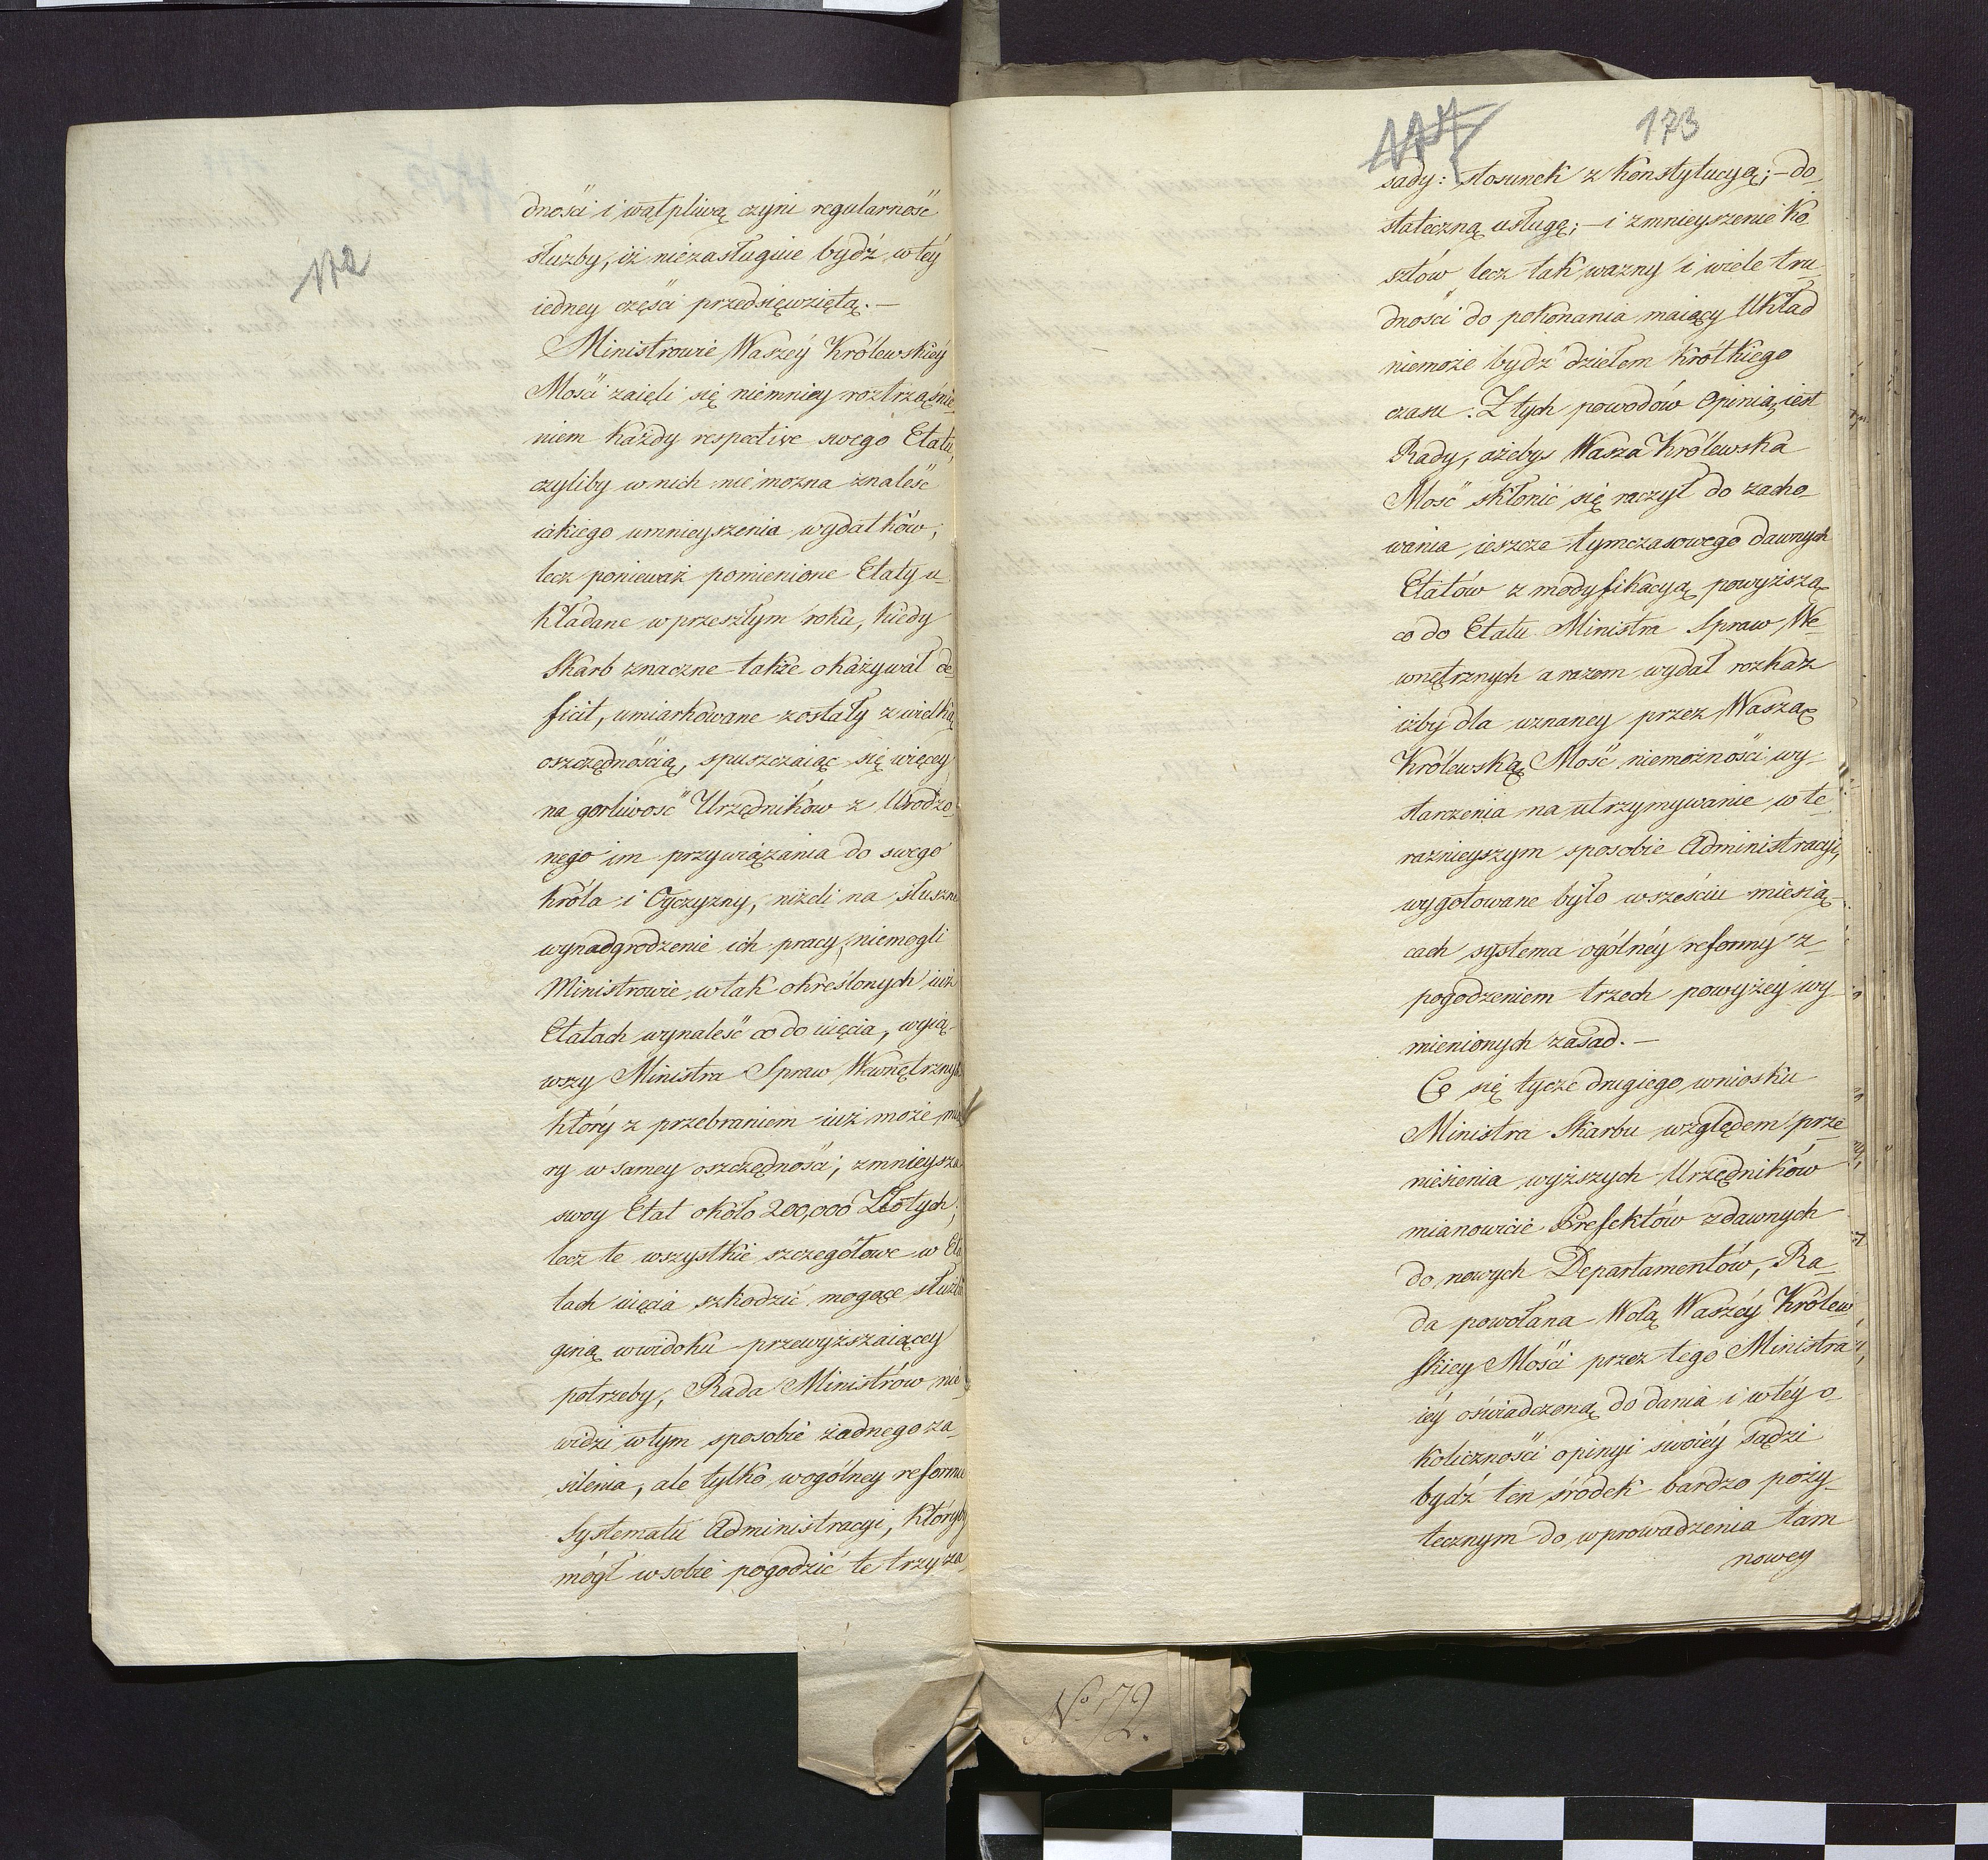 172
dności i wątpliwą czyni regularność
służby, iż niezasługuie bydź w tey
iedney części przedsięwziętą. —
Ministrowie Waszey Królewskiey
Mości zaięli się niemniey roztrząśnie-
niem każdy respective swego Etatu,
czyliby w nich nie można znaleść
iakiego umnieyszenia wydatków,
lecz ponieważ pomienione Etaty u-
kładane w przeszłym roku, kiedy
Skarb znaczne także okazywał de-
ficit, umiarkowane zostały z wielką
oszczędnością, spuszczaiąc się więcey
na gorliwość Urzędników z Urodzo-
nego im przywiązania do swego
Króla i Oyczyzny, niżeli na słuszne
wynadgrodzenie ich pracy, niemogli
Ministrowie w tak określonych iuż
Etatach wynaleść co do uięcia, wyią-
wszy Ministra Spraw Wewnętrznych
który z przebraniem iuż może mia-
ry w samey oszczędności, zmnieysza
swoy Etat około 200,000 Złotych;
lecz te wszystkie szczegółowe w Eta-
tach uięcia szkodzić mogące służbie
giną w widoku przewyższaiącey
potrzeby, Rada Ministrów nie-
widzi w tym sposobie żadnego za-
silenia, ale tylko w ogólney reformie
Systematu Administracyi, któryby
mógł w sobie pogodzić te trzy za-
173
sady: stosunek z Konstytucyą; — do-
stateczną usługę; — i zmnieyszenie ko-
sztów lecz tak ważny i wiele tru-
dności do pokonania maiący Układ
niemoże bydź dziełem krótkiego
czasu. Z tych powodów Opinią iest
Rady, ażebyś Wasza Królewska
Mość skłonić się raczył do zacho-
wania ieszcze tymczasowego dawnych
Etatów z modyfikacyą powyższą
co do Etatu Ministra Spraw We-
wnętrznych a razem wydał rozkaz
iżby dla uznaney przez Waszą
Królewską Mość niemożności wy-
starczenia na utrzymywanie w te-
raznieyszym sposobie Administracyi,
wygotowane było w sześciu miesią-
cach systema ogólnéy reformy z
pogodzeniem trzech powyżey wy-
mienionych zasad. —
Co się tycze drugiego wniosku
Ministra Skarbu względem prze-
niesienia wyższych Urzędników
mianowicie Prefektów z dawnych
do nowych Departamentów, Ra-
da powołana Wolą Waszéy Królew-
skiey Mości przez tego Ministra
iéy oświadczoną do dania i w téy o-
koliczności opinyi swoiéy sądzi
bydź ten środek bardzo poży-
tecznym do wprowadzenia tam
nowey
No 72.